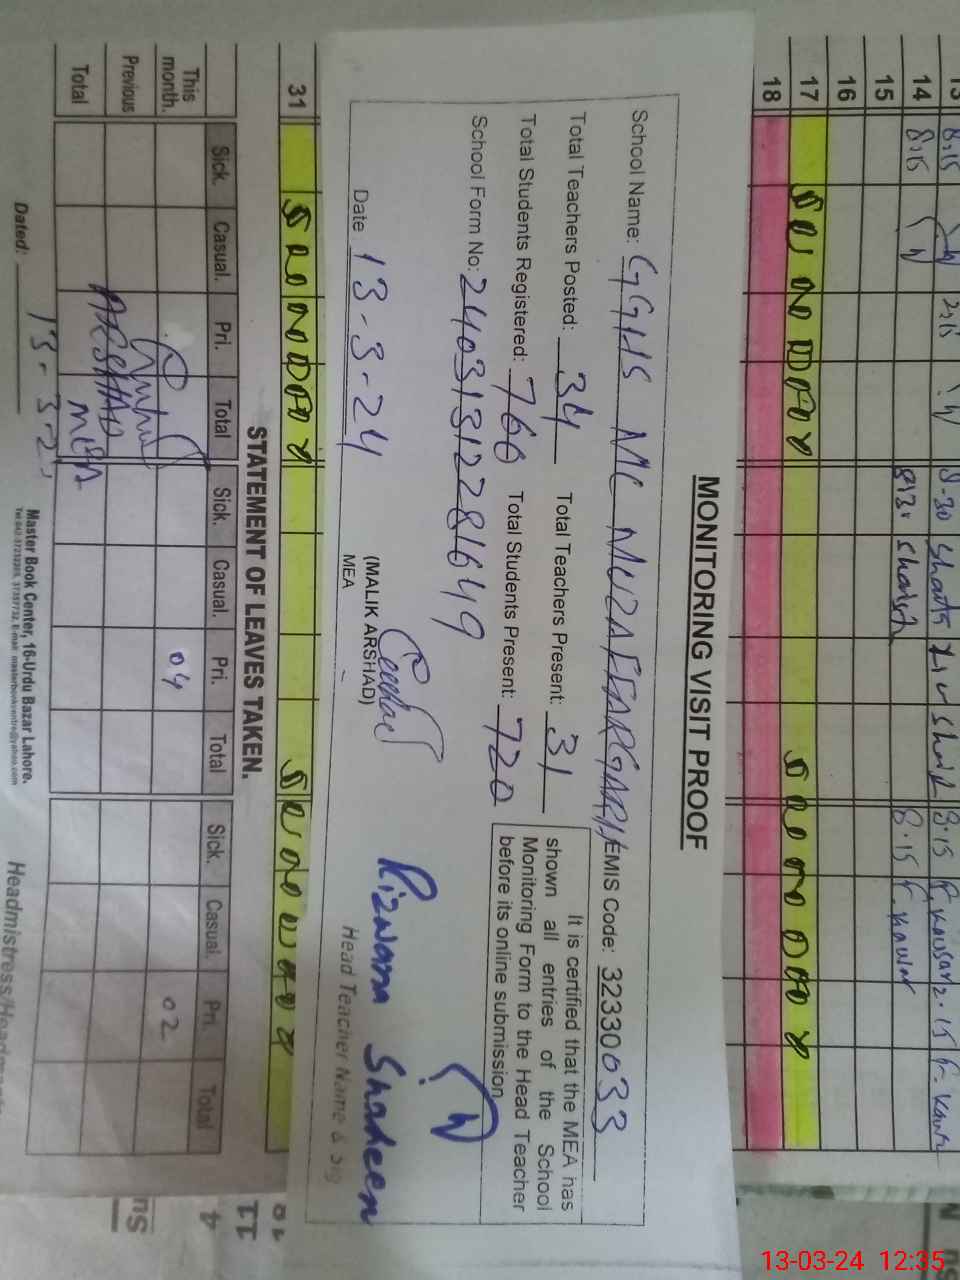 13 8.15 2.15 8-30 8.15 F. Kousar 2.15 F. Kousar
14 8.15 8.15 F. Kousar
15
16
17 SUNDAY SUNDAY
18
MONITORING VISIT PROOF
School Name: GGHS MC MUZAFFARGARH EMIS Code: 32330033
Total Teachers Posted: 34 Total Teachers Present: 31
Total Students Registered: 766 Total Students Present: 720
School Form No: 24031312281649
It is certified that the MEA has
shown all entries of the School
Monitoring Form to the Head Teacher
before its online submission
Date 13-3-24
(MALIK ARSHAD)
MEA
Rizwana Shaheen
Head Teacher Name & Sig
31 SUNDAY SUNDAY
STATEMENT OF LEAVES TAKEN.
Sick. Casual. Pri. Total Sick. Casual. Pri. Total Sick. Casual. Pri. Total
This month. 04 02
Previous
Total ARSHAD MEA
Dated: 13-3-2
Master Book Center, 16-Urdu Bazar Lahore.
Headmistress/Headm
13-03-24 12:35